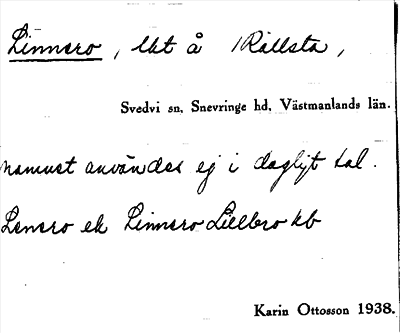 Linnsro, lht å 1 Rållsta,
Svedvi sn, Snevringe hd, Västmanlands län.
namnet användes ej i dagligt tal.
Lensro ek Linnsro Lillbro kb
Karin Ottosson 1938.